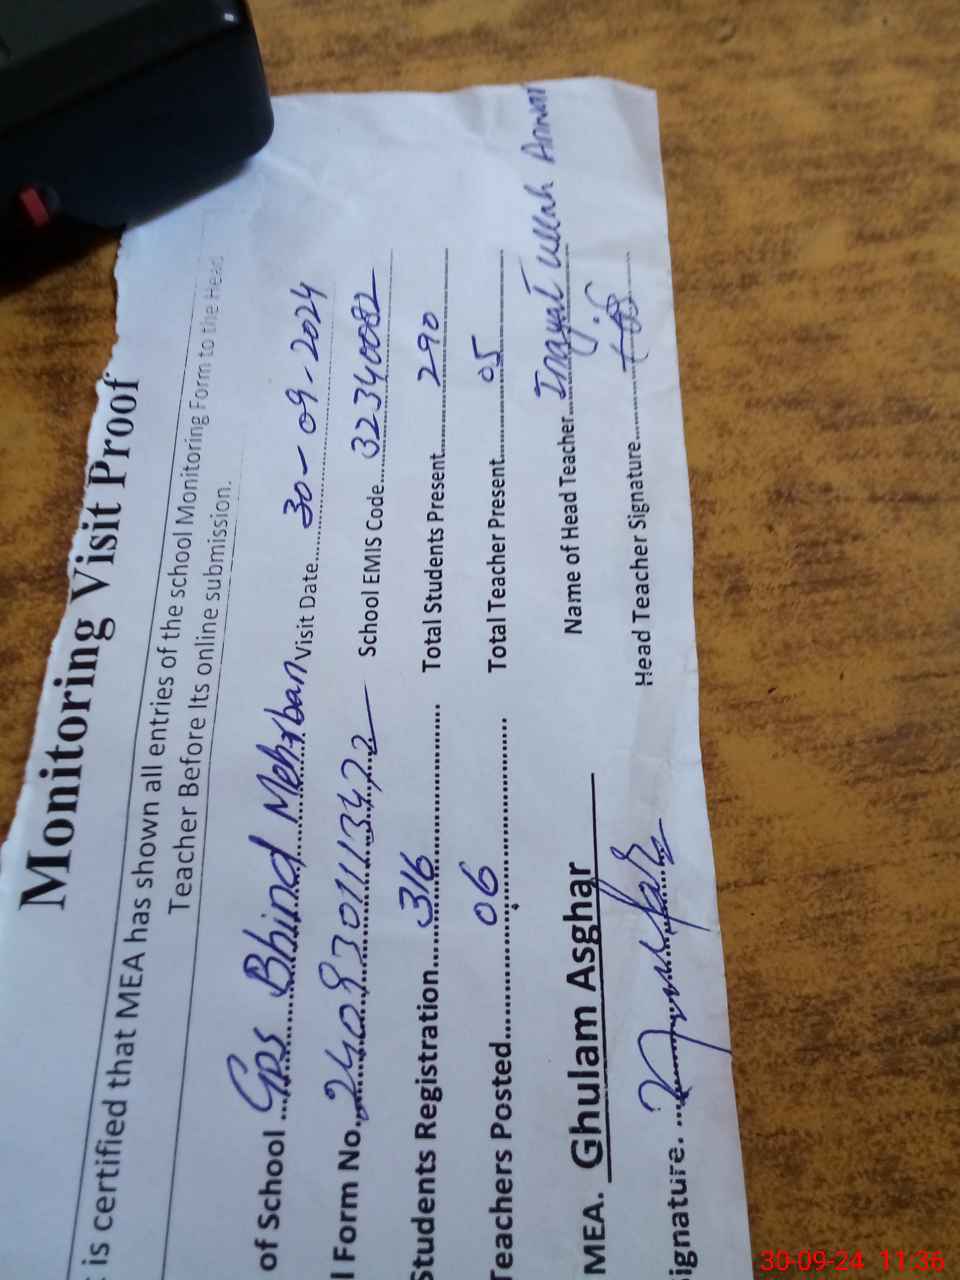 Monitoring Visit Proof
is certified that MEA has shown all entries of the school Monitoring Form to the Head
Teacher Before Its online submission.
of School ....Gps Bhind Mehrban Visit Date....30-09-2024
l Form No. School EMIS Code.....32340082
Students Registration....316 Total Students Present....290
Teachers Posted....06 Total Teacher Present....05
MEA. Ghulam Asghar Name of Head Teacher...Inayat Ullah Anwar
ignature. Head Teacher Signature....
30-09-24 11:36